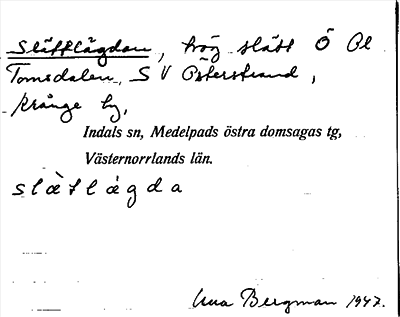 Slättlägdan, hög slätt Ö Ol
Tomsdalen, S V Österstrand,
Kränge by,
Indals sn, Medelpads östra domsagas tg,
Västernorrlands län.
slàtlägda
Una Bergman 1947.